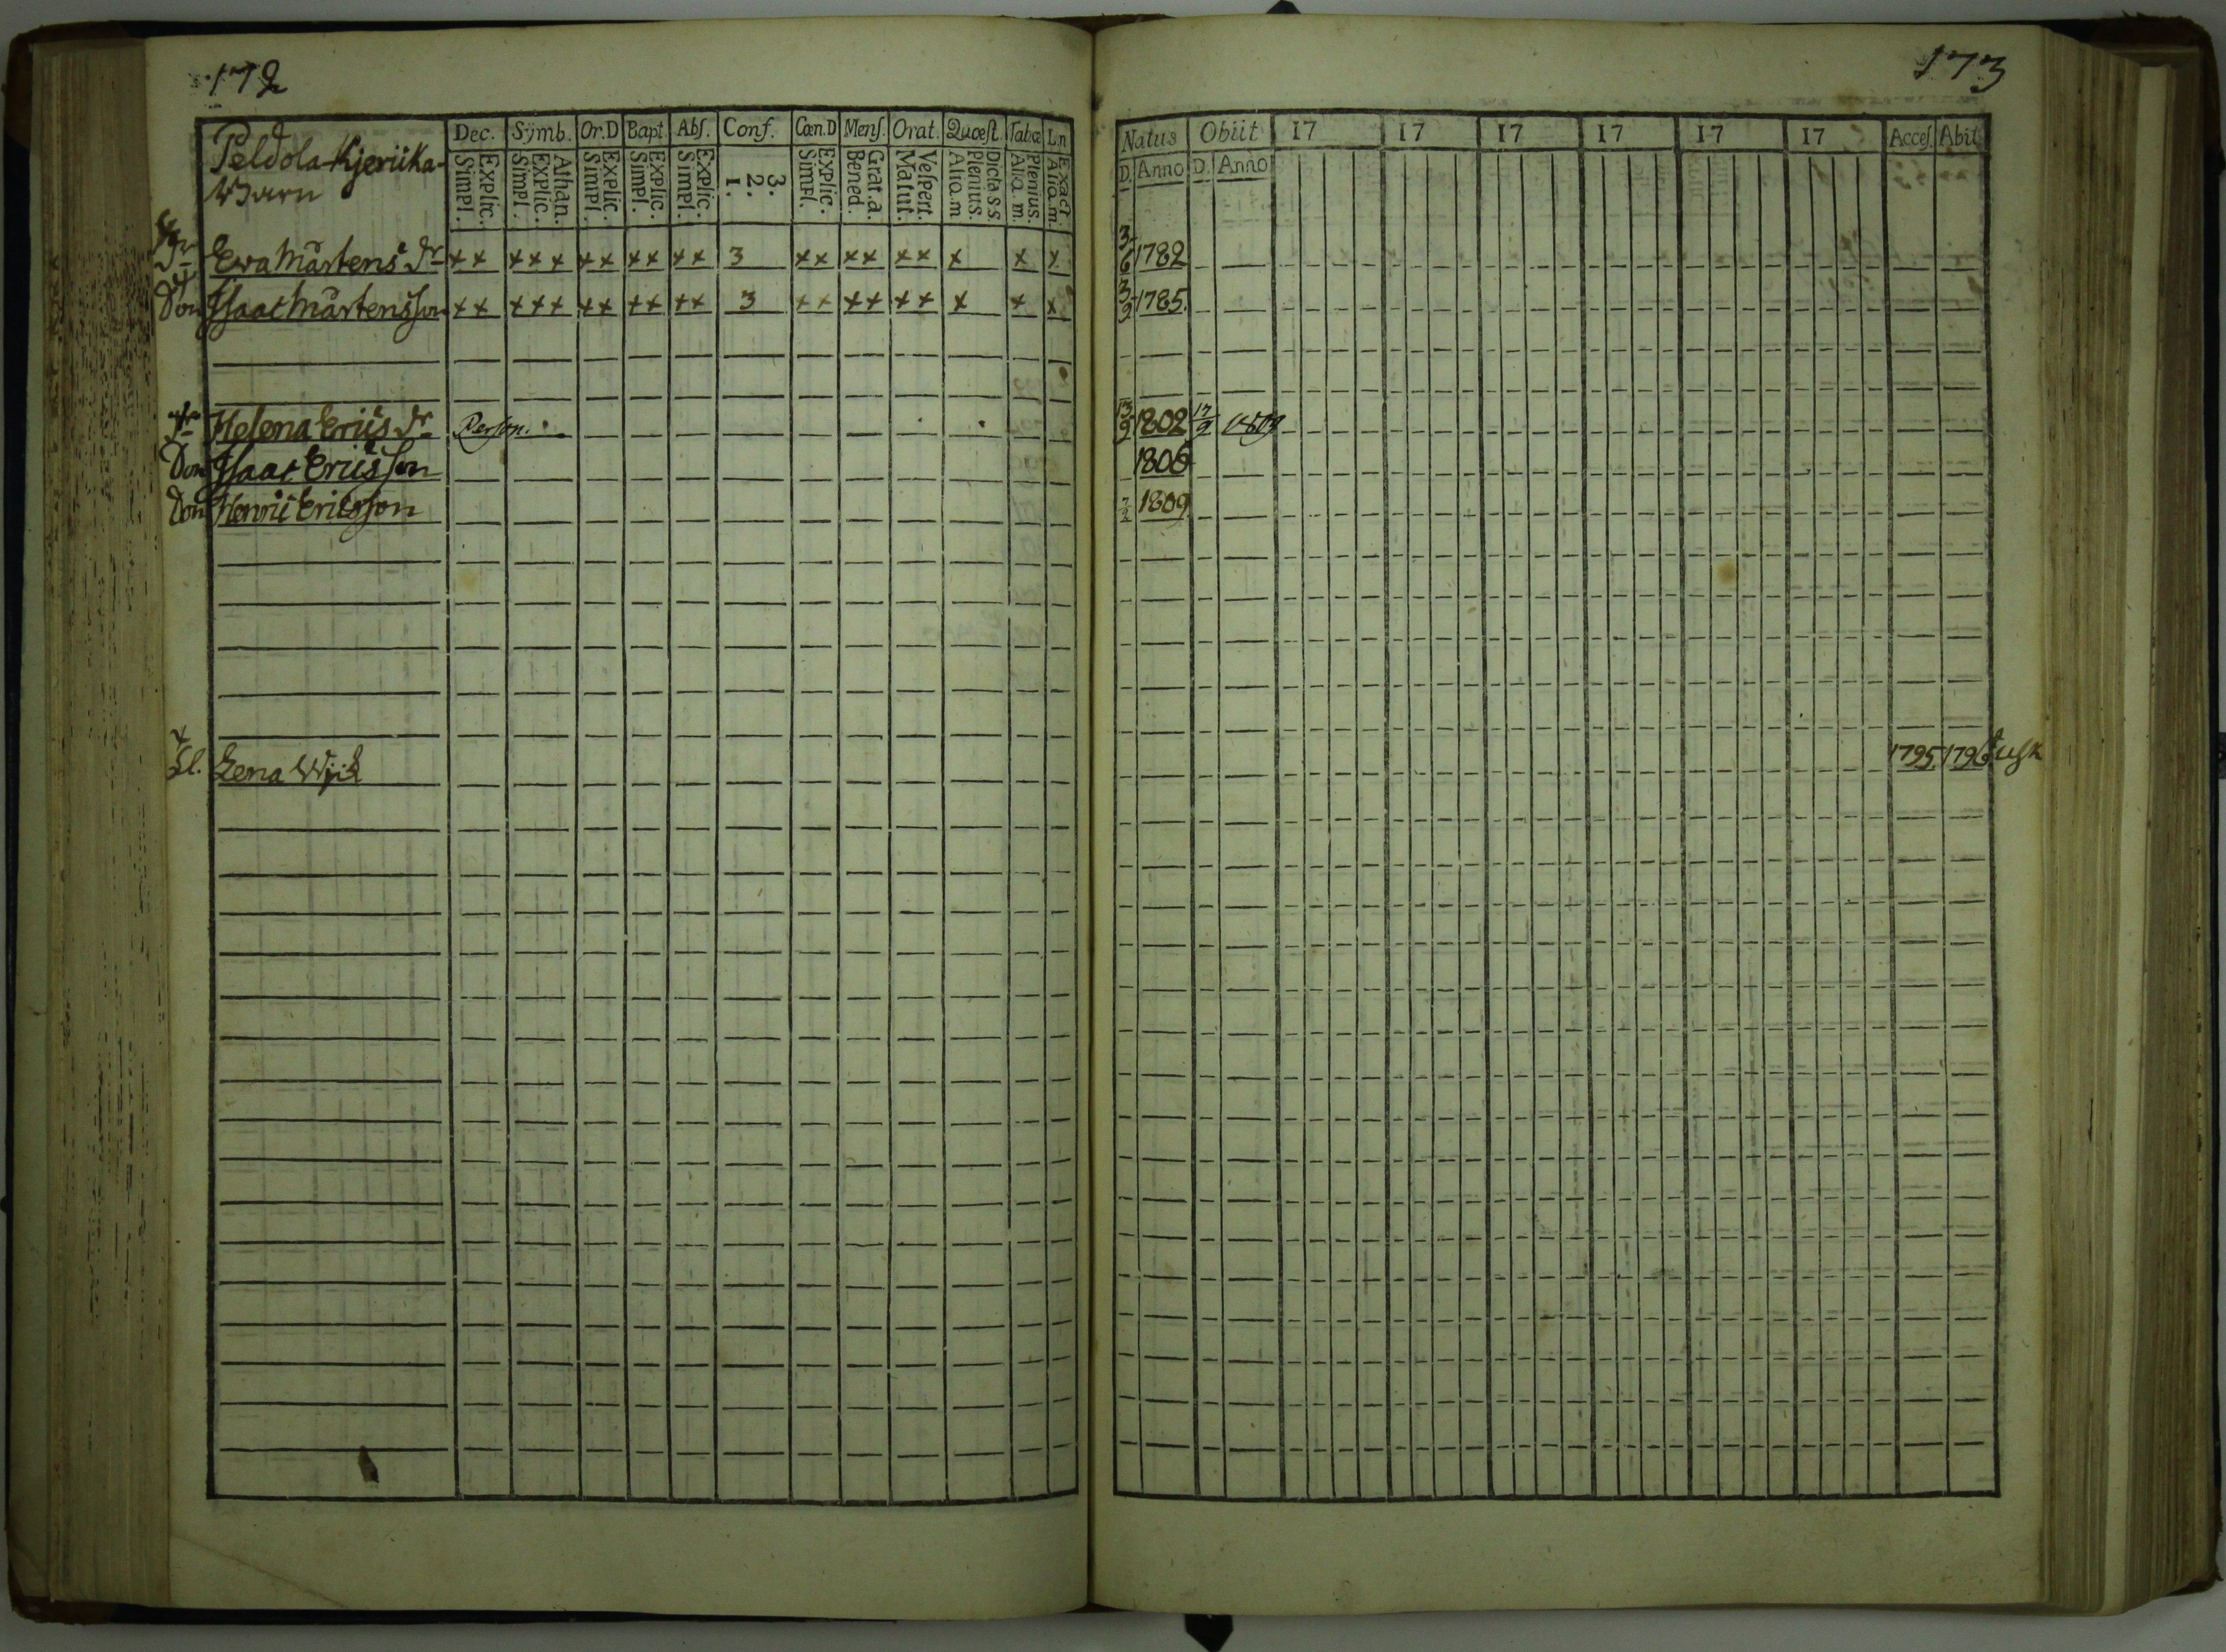 172
Peldola Kjeriika-
Barn
Dec. Symb. Or.D Bapt. Abſ. Conf. Cœn.D Menſ. Orat. Quœſt. Tabœ L.n
Explic. Simpl. Athan. Explic. Simpl. Explic. Simpl. Explic. Simpl. Explic. Simpl. 3. 2. 1. Explic. Simpl. Grat.a. Bened. Veſpert. Matut. Dicta s s. Plenius. Aliq.m Plenius. Aliq.m. Exact Aliq.m.
Dr Ewa Mårtens Dr ×× ××× ×× ×× ×× 3 ×× ×× ×× × × ×
Son Isaac Mårtensson ×× ××× ×× ×× ×× 3 ×× ×× ×× × × ×
Dr Helena Erics Dr
Son Isaac Ericsson
Son Henric Ericsson
Lena Wijk
173
Natus Obiit 17 17 17 17 17 17 Acceſ. Abit
D. Anno D. Anno
3/6 1782
3/9 1785.
13/9 1802 17/9 1809
1806
1809
1795 1796